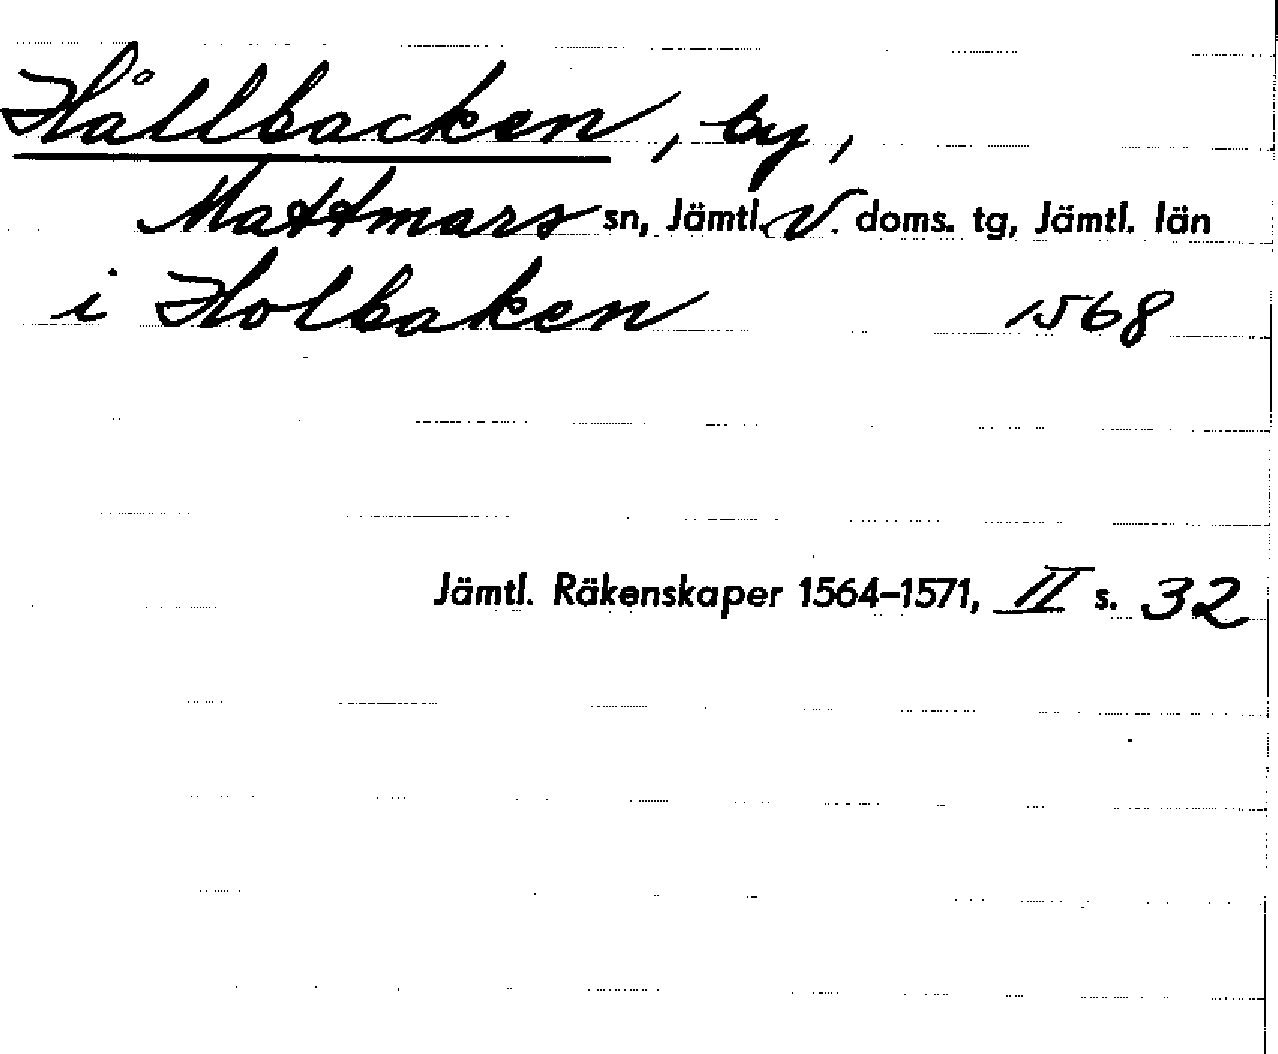 Hållbacken, by,
Mattmars sn, Jämtl. V. doms. tg, Jämtl. län
i Holbaken 1568
Jämtl. Räkenskaper 1564–1571, II s. 32